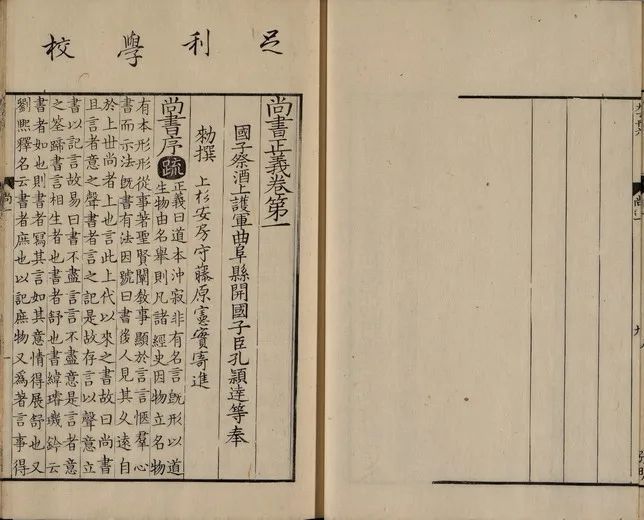 足利學校
尚書正義卷第一
國子祭酒上護軍曲阜縣開國子臣孔穎達等奉
勑撰 上杉安房守藤原憲實寄進
尚書序 疏 正義曰道本沖寂非有名言旣形以道
生物由名舉則凡諸經史因物立名物
有本形形從事著聖賢闡教事顯於言言愜羣心
書而示法旣書有法因號曰書後人見其久遠自
於上世尚者上也言此上代以來之書故曰尚書
且言者意之聲書者言之記是故存言以聲意立
書以記言故易曰書不盡言言不盡意是言者意
之筌蹄書言相生者也書者舒也書緯璿璣鈐云
書者如也則書者寫其言如其意情得展舒也又
劉熙釋名云書者庶也以記庶物又爲著言事得
尚一